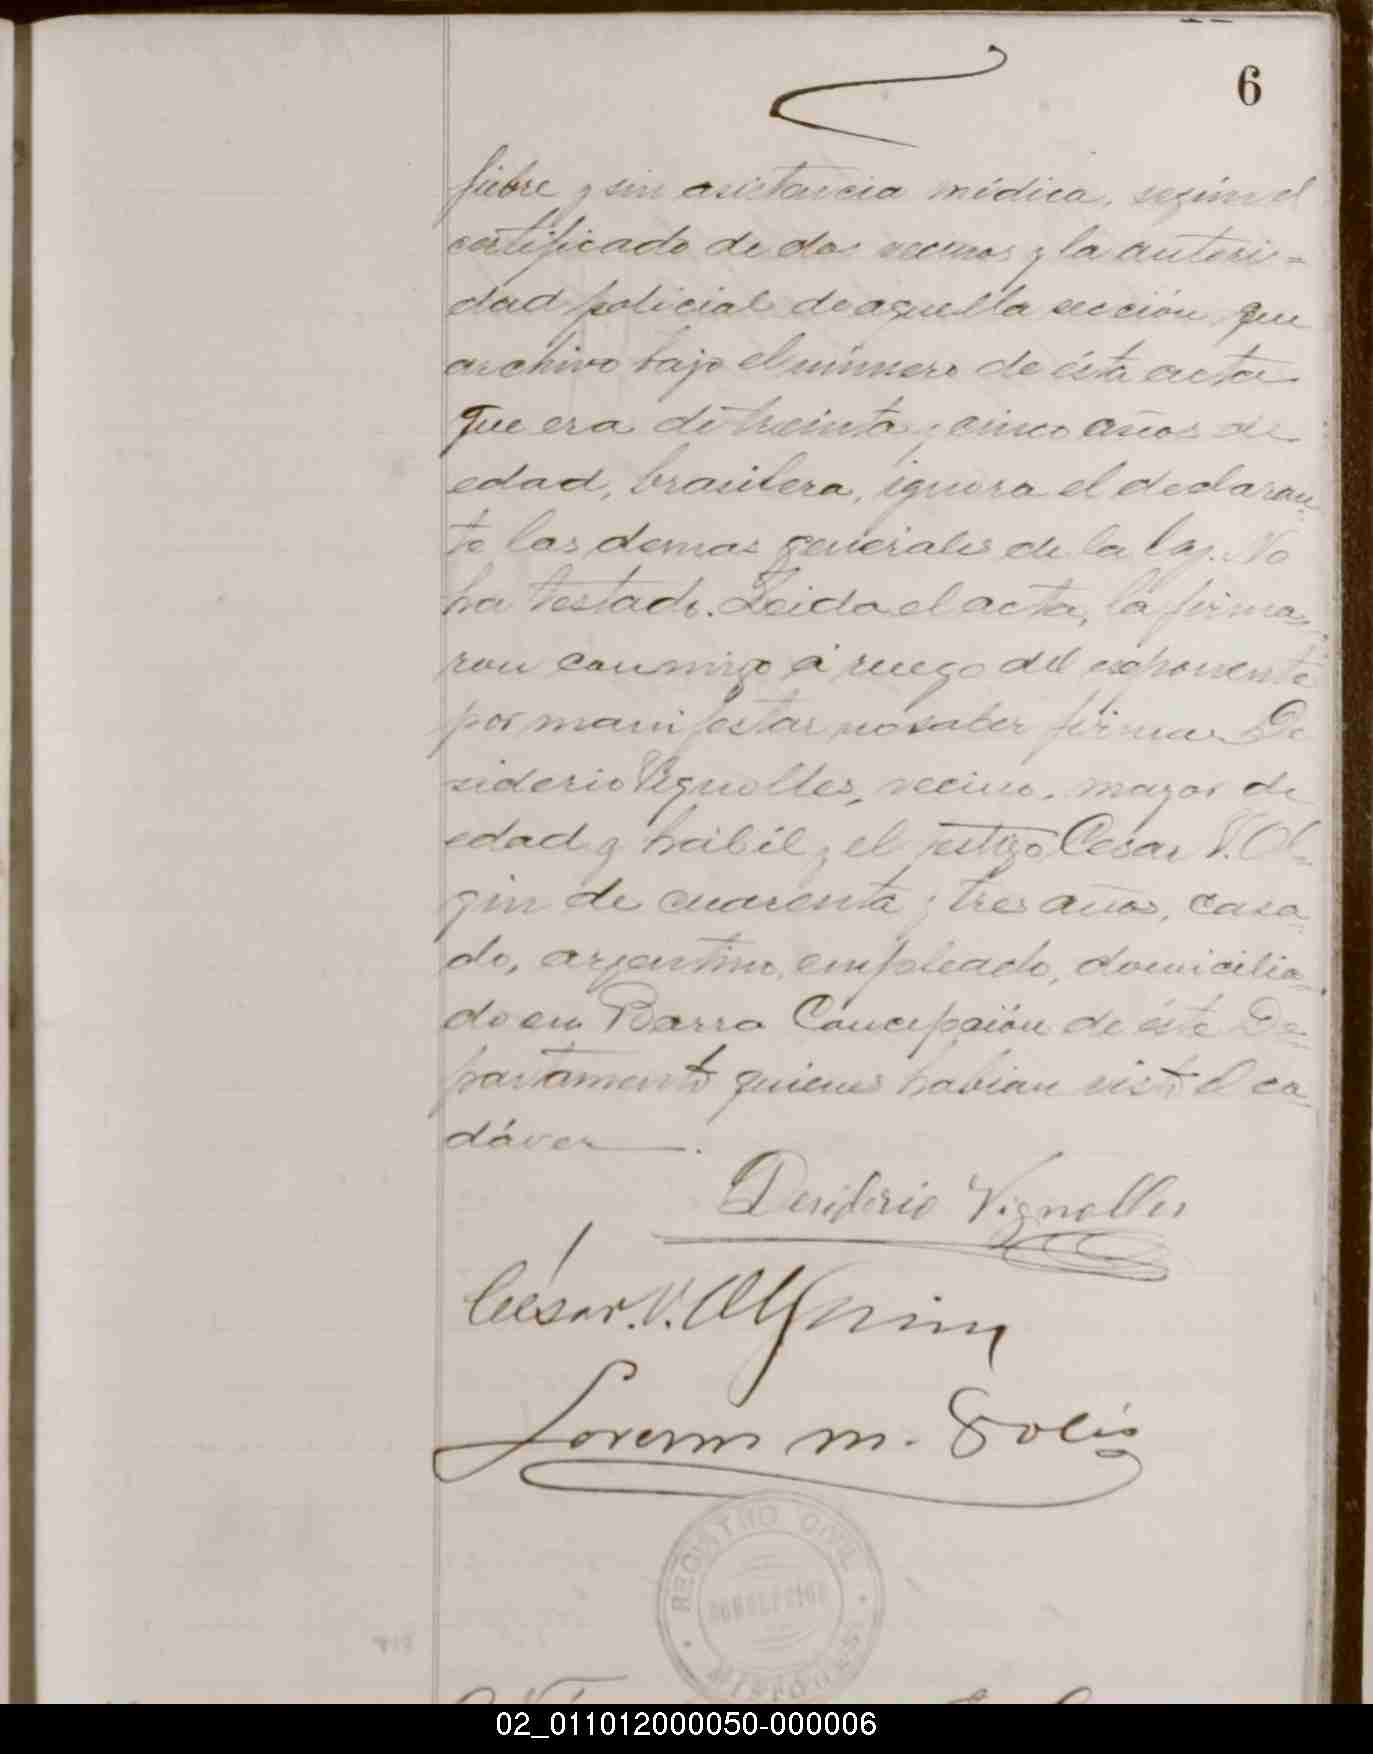 6
fiebre y sin asistencia médica, según el
certificado de dos vecinos y la autori=
dad policial de aquella sección, que
archivo bajo el número de ésta acta
que era de treinta y cinco años de
edad, brasilera, ignora el declaran
te las demas generales de la ley. No
ha testado. Leida el acta, la firma=
ron conmigo á ruego del exponente
por manifestar no saber firmar De
siderio Vignolles, vecino, mayor de
edad y hábil y el testigo Cesar V. Ol=
gin de cuarenta y tres años, casa
do, argentino, empleado, domicilia=
do en Barra Concepción de éste De=
partamento quienes habian visto el ca
dáver.
Desiderio Vignolles
César. V. Olguin
Lorenzo M. Solis
REGISTRO CIVIL
CONCEPCION
MISIONES
02_011012000050-000006